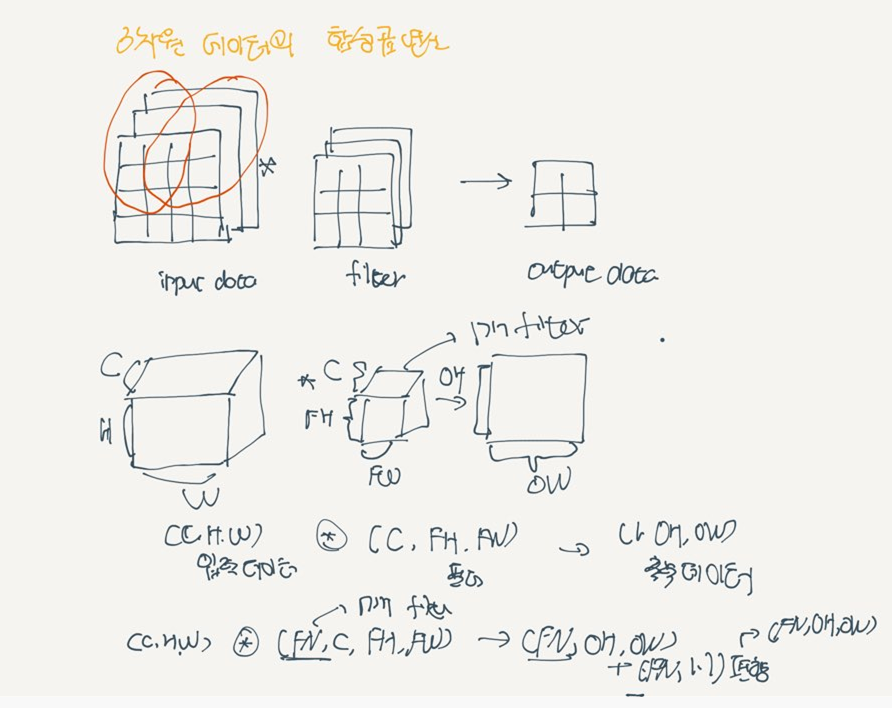 3차원 데이터의 합성곱 연산
*
input data filter output data
C * C OH 1개 filter
H FH
W FW OW
(C, H, W) * (C, FH, FW) → (1, OH, OW)
입력 데이터 필터 출력 데이터
filter
(C, H, W) * (FN, C, FH, FW) → (FN, OH, OW) → (FN, OH, OW)
+ (FN, 1, 1) 편향